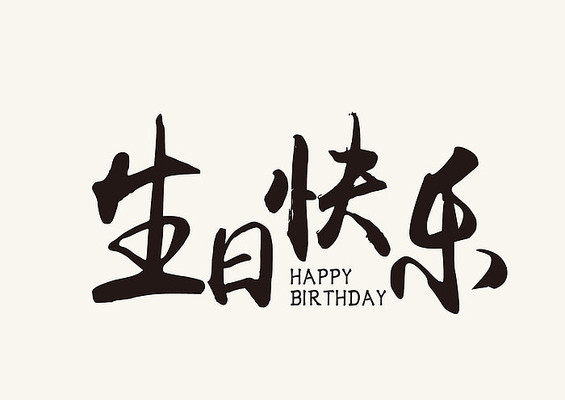 生日快乐
HAPPY
BIRTHDAY